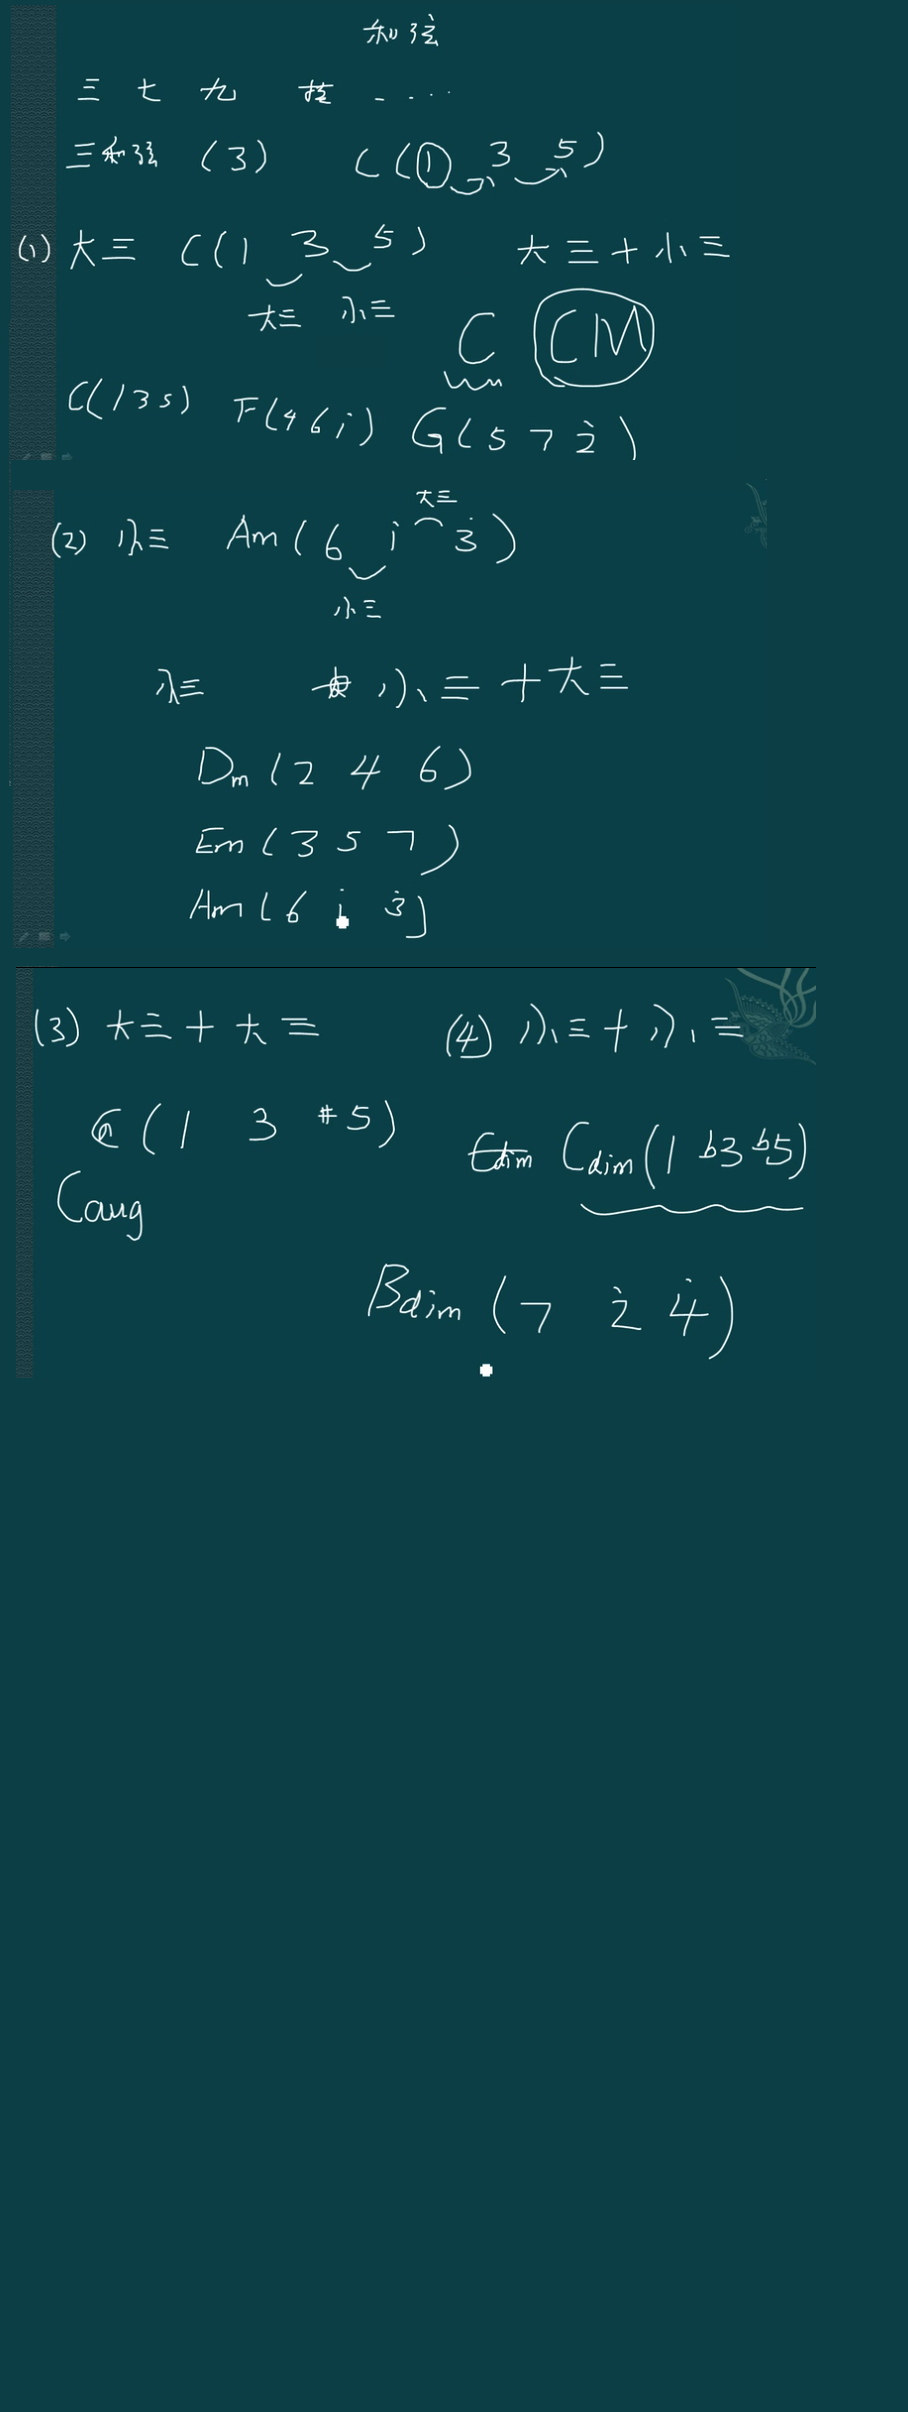 和弦
三 七 九 挂 - - ...
三和弦 (3) C(① 3 5)
(1) 大三 C(1 3 5) 大三+小三
大三 小三
C CM
C(1 3 5) F(4 6 i) G(5 7 2̇)
大三
(2) 小三 Am(6 i 3̇)
小三
小三 小三+大三
Dm(2 4 6)
Em(3 5 7)
Am(6 i 3̇)
(3) 大三+大三 (4) 小三+小三
(1 3 #5) Cdim(1 b3 b5)
Caug
Bdim(7 2̇ 4̇)